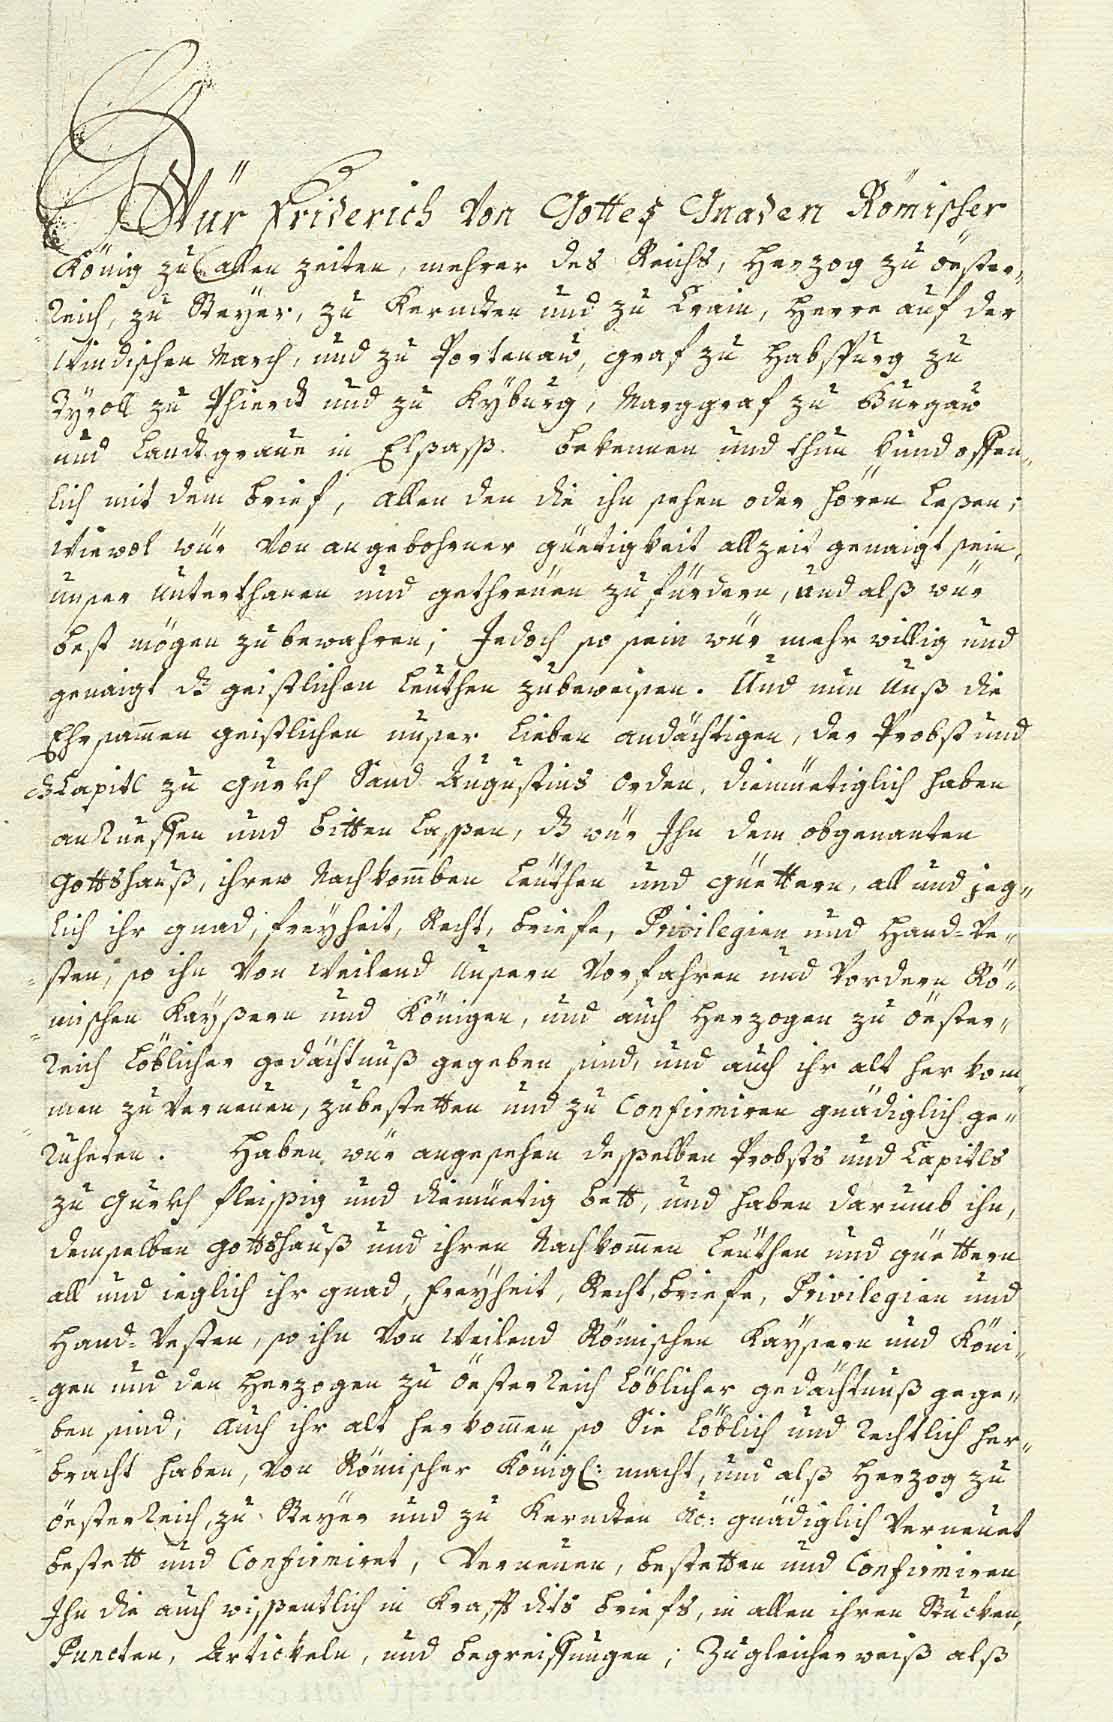 Wür Friderich Von Gottes Gnaden Römischer
König zu allen zeiten, mehrer des Reichs, Herzog zu öster„
reich, zu Steyer, zu Kerndten und zu Crain, Herre auf der
Windischen March, und zu Portenaw, graf zu Habspurg zu
Tyroll zu Phierdt und zu Kyburg, Marggraf zu Burgaw
und Landtgraue in Elsaß. bekennen und thun kund offen„
lich mit dem brief, allen den die ihn sehen oder hören leßen;
Wiewol wür Von angebohrner güetigkeit allzeit genaigt sein,
unser Unterthanen und gethreüen zu fürdern, und alß wür
best mögen zu bewahren; Jedoch so sein wür mehr willig und
genaigt dz geistlichen leüthen zubeweisen. Und nun Unß die
Ehrsamen geistlichen unser lieben andächtigen, der Probst und
dz Capitl zu gurkh Sand Augustins orden, diemüetiglich haben
anrueffen und bitten laßen, dz wür Ihn dem obgenanten
Gottshauß, ihren Nachkomben leüthen und güettern, all und jeg„
lich ihr gnad, freyheit, Recht, briefe, Privilegien und Hand=Ve„
sten, so ihn Von Weilend Unsern Vorfahren und Vordern Rö„
mischen Kayßern und Königen, und auch Herzogen zu öster„
reich löblicher gedächtnuß gegeben sind, und auch ihr alt herkom„
men zu Verneuen, zubestetten und zu Confirmiren gnädiglich ge„
ruheten. Haben wür angesehen desselben Probsts und Capitls
zu gurkh fleissig und diemüetig bett, und haben darumb ihn,
demselben Gottshauß und ihren Nachkomen leüthen und güettern
all und ieglich ihr gnad, freyheit, Recht, briefe, Privilegien und
Hand=Vesten, so ihn Von Weilend Römischen Kaysern und Köni„
gen und den Herzogen zu österreich löblicher gedächtnuß gege„
ben sind, auch ihr alt herkomen so Sie löblich und rechtlich her„
bracht haben, Von Römischer Königl: macht, und alß Herzog zu
österreich, zu Steyer und zu Kerndten &c: gnädiglich Verneuet
bestett und Confirmiret, Verneuen, bestetten und Confirmiren
Ihn die auch wissentlich in Krafft dits briefs, in allen ihren Stucken,
Puncten, Artickeln, und begreiffungen; Zugleicherweiß alß